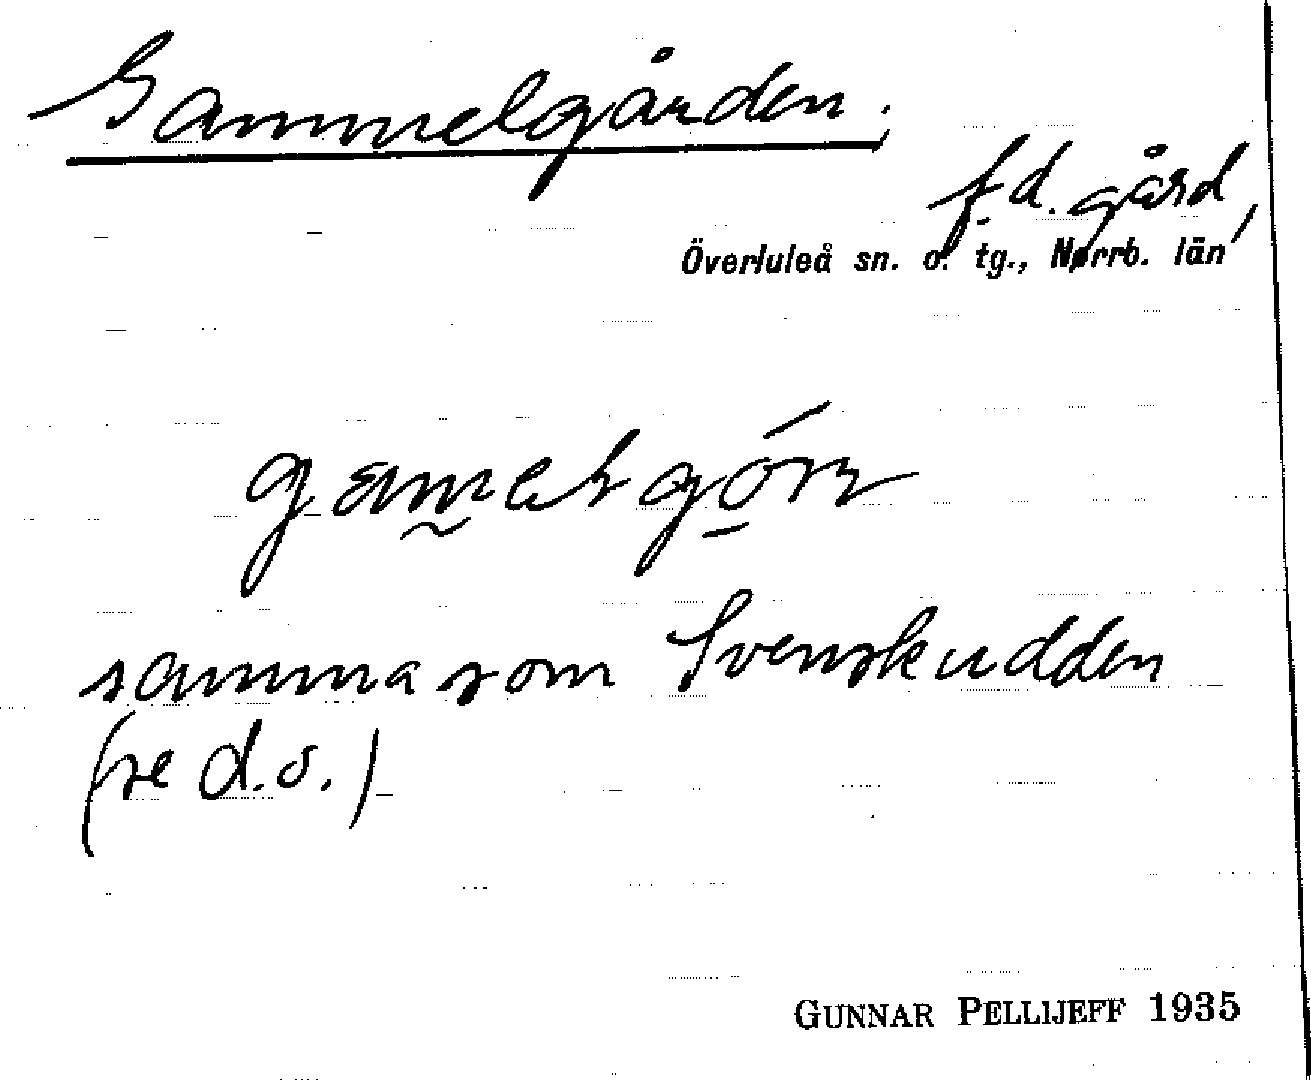 Gammelgården;
f.d. gård,
Överluleå sn. o. tg., Norrb. län
samma som Svenskudden
(se d.o.)
GUNNAR PELLIJEFF 1935